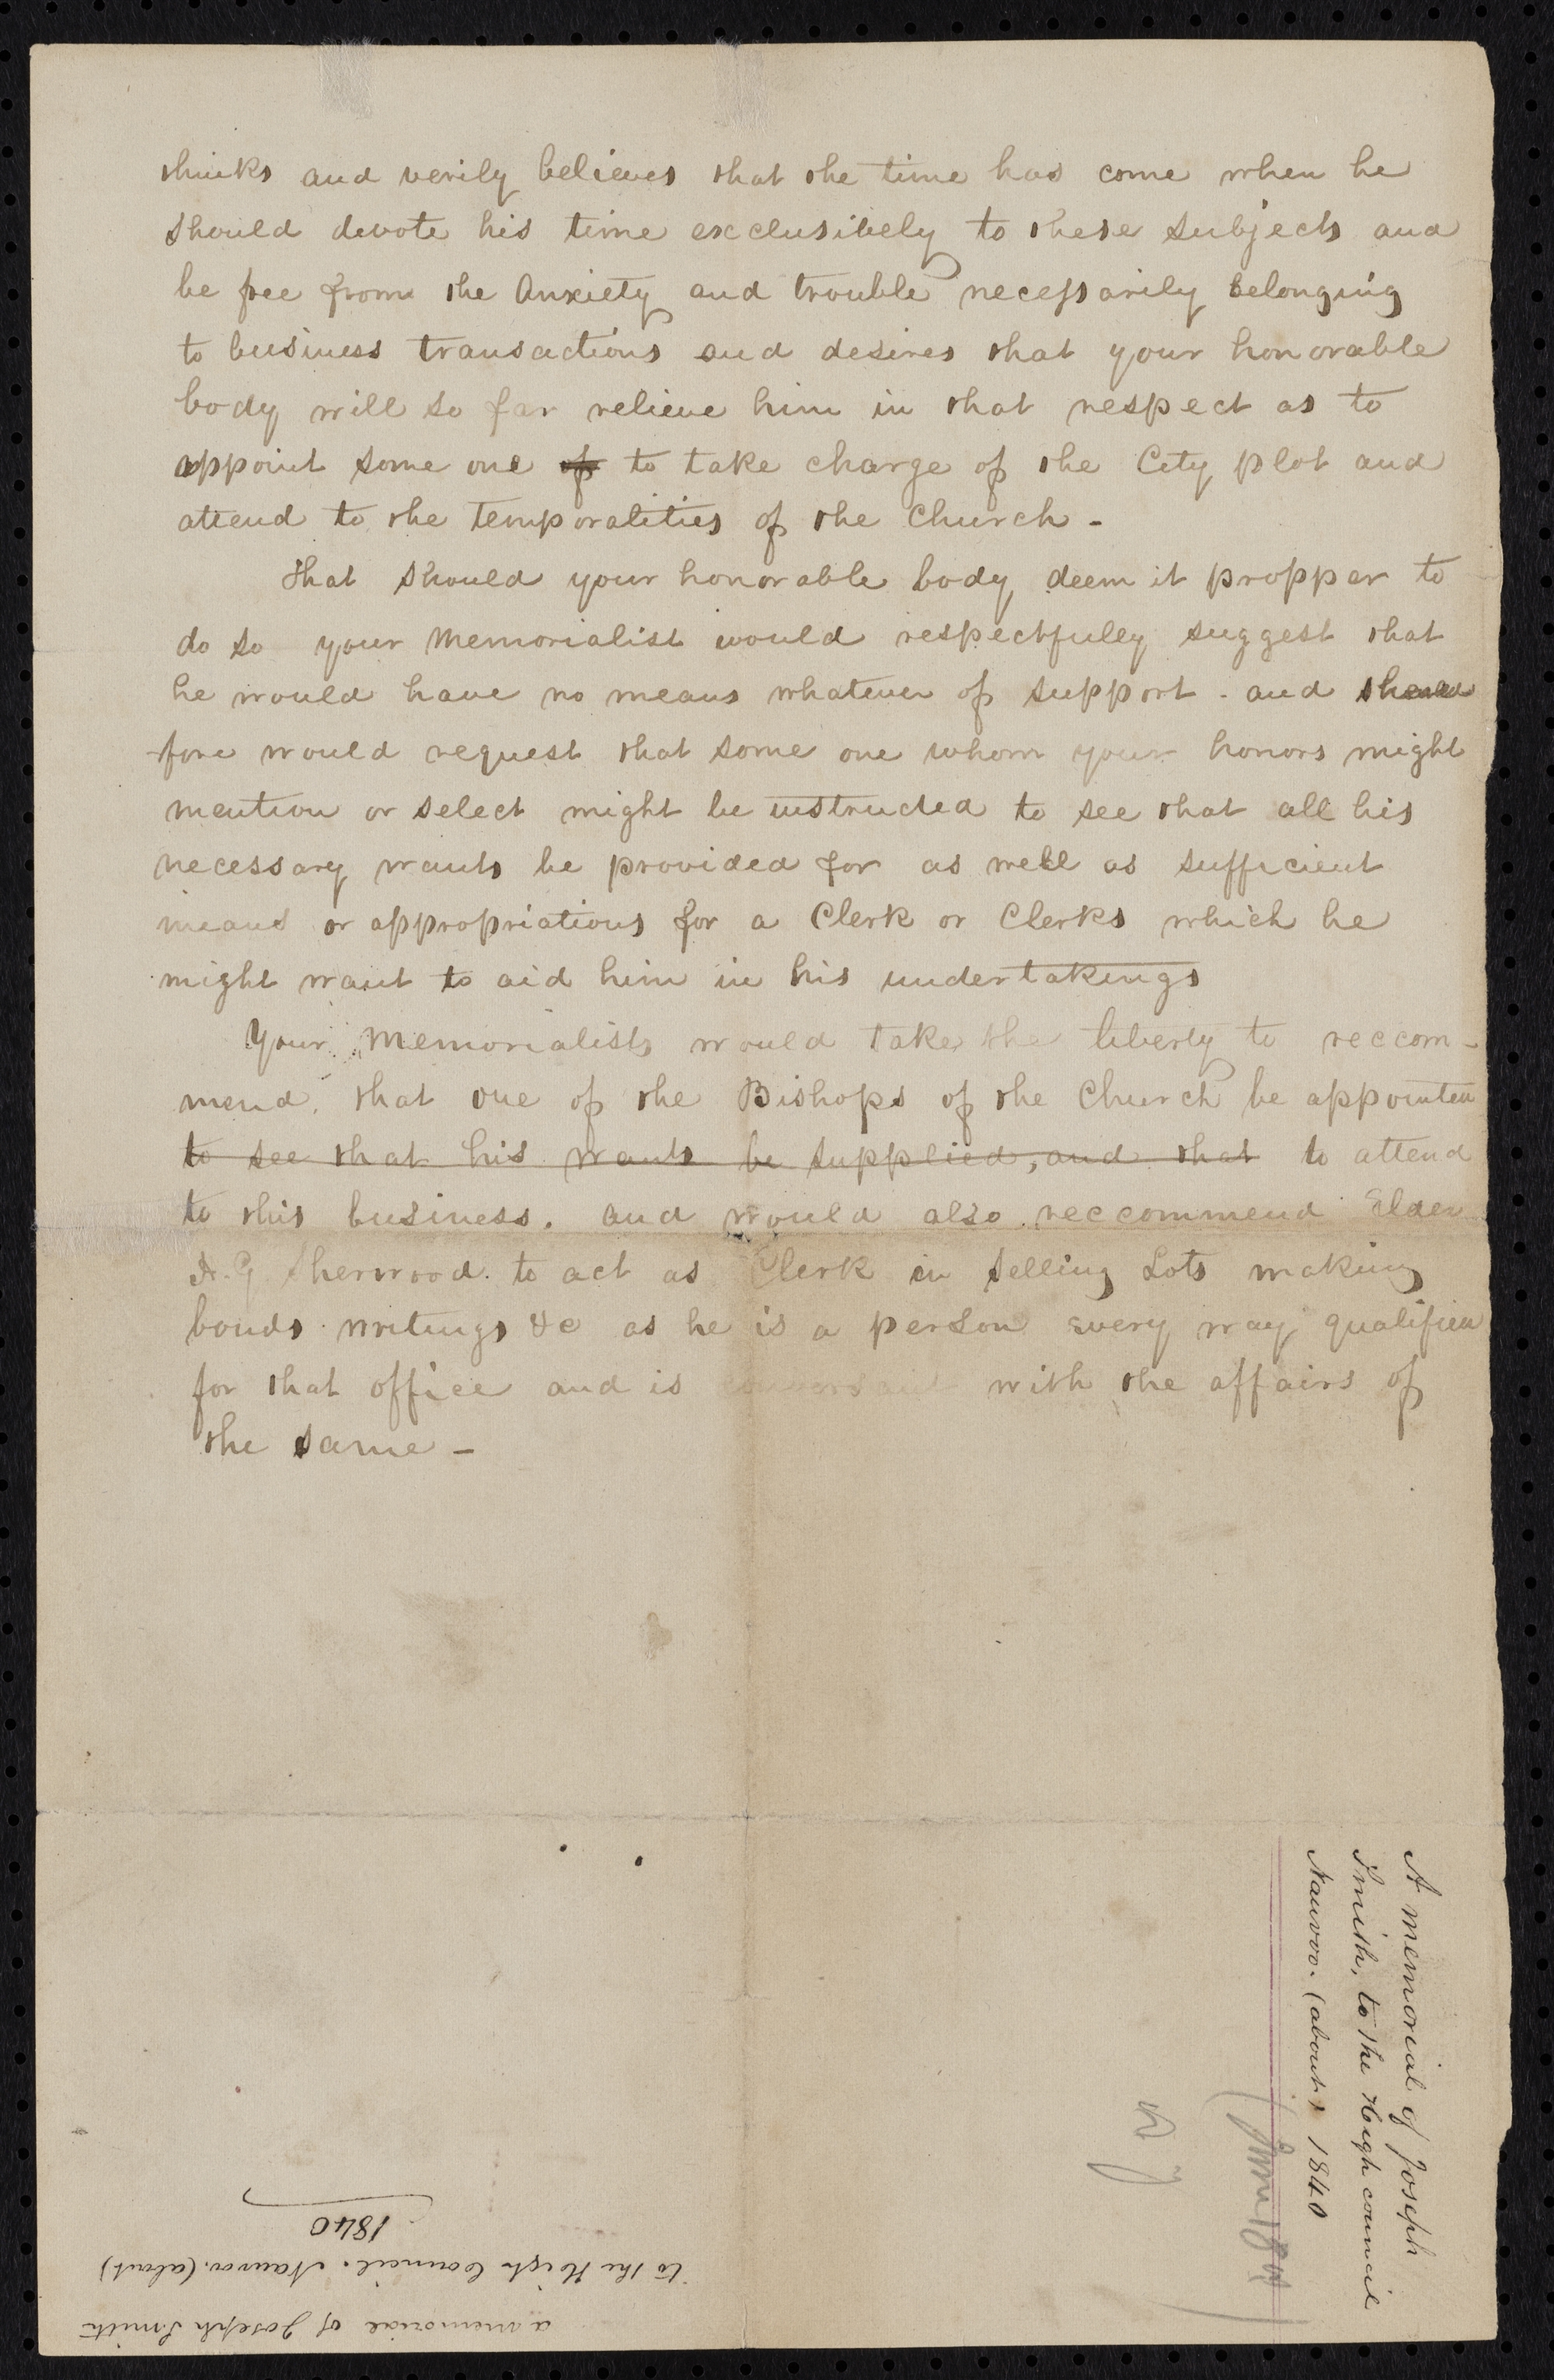 thinks and verily believes that the time has come when he
should devote his time exclusively to these subjects and
be free from the Anxiety and trouble necessarily belonging
to business transactions and desires that your honorable
body will so far relieve him in that respect as to
appoint some one of to take charge of the City plot and
attend to the temporalities of the Church -
That should your honorable body deem it propper to
do so your Memorialist would respectfully suggest that
he would have no means whatever of support - and there
fore would request that some one whom your honors might
mention or select might be instructed to see that all his
necessary wants be provided for as well as sufficient
means or appropriations for a Clerk or Clerks which he
might want to aid him in his undertakings
Your Memorialists would take the liberty to reccom-
mend, that one of the Bishops of the Church be appointed
to see that his wants be supplied, and that to attend
to this business. and would also reccommend Elder
H. G. Sherwood. to act as Clerk in selling Lots making
bonds writings &c as he is a person every way qualified
for that office and is conversant with the affairs of
the same -
A memorial of Joseph
Smith, to the High council
Nauvoo. (about) 1840
a memorial of Joseph Smith
to the High Council. Nauvoo. (about)
1840